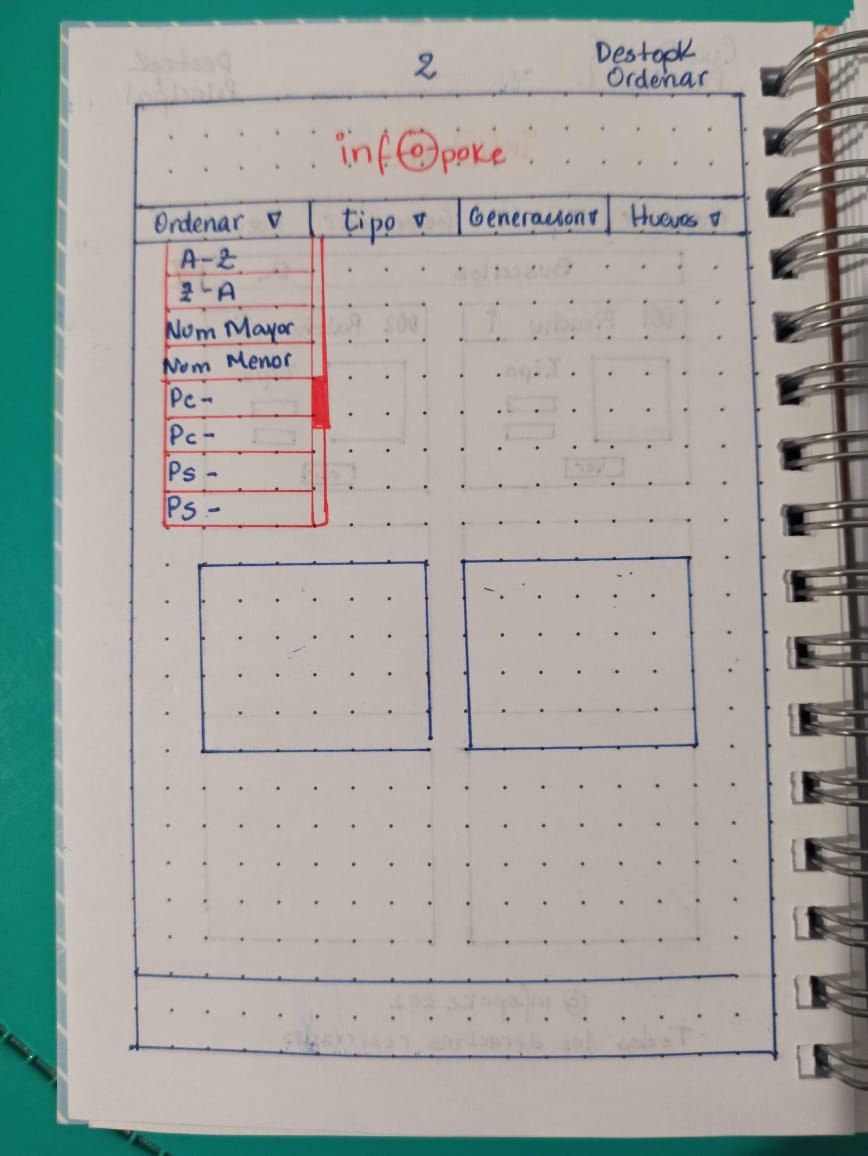 2
Destopk
Ordenar
infopoke
Ordenar ▽ Tipo ▽ Generacion ▽ Huevos ▽
A-Z
Z-A
Num Mayor
Num Menor
Pc -
Pc -
Ps -
Ps -